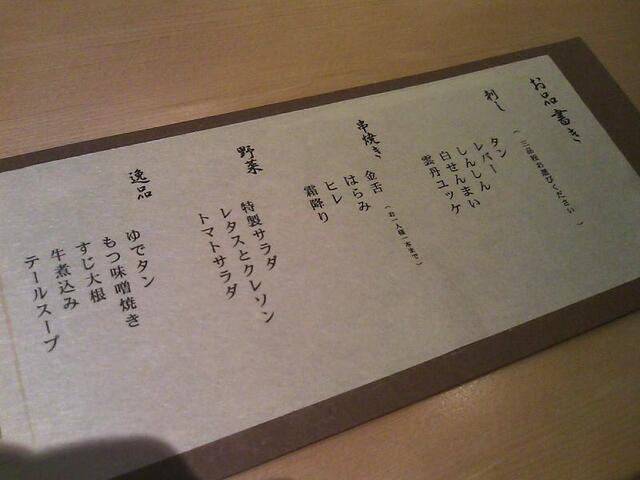 お品書き
（三品程お選びください）
刺し
タン
レバー
しんしん
白せんまい
雲丹ユッケ
串焼き
（お一人様一本まで）
金舌
はらみ
ヒレ
霜降り
野菜
特製サラダ
レタスとクレソン
トマトサラダ
逸品
ゆでタン
もつ味噌焼き
すじ大根
牛煮込み
テールスープ